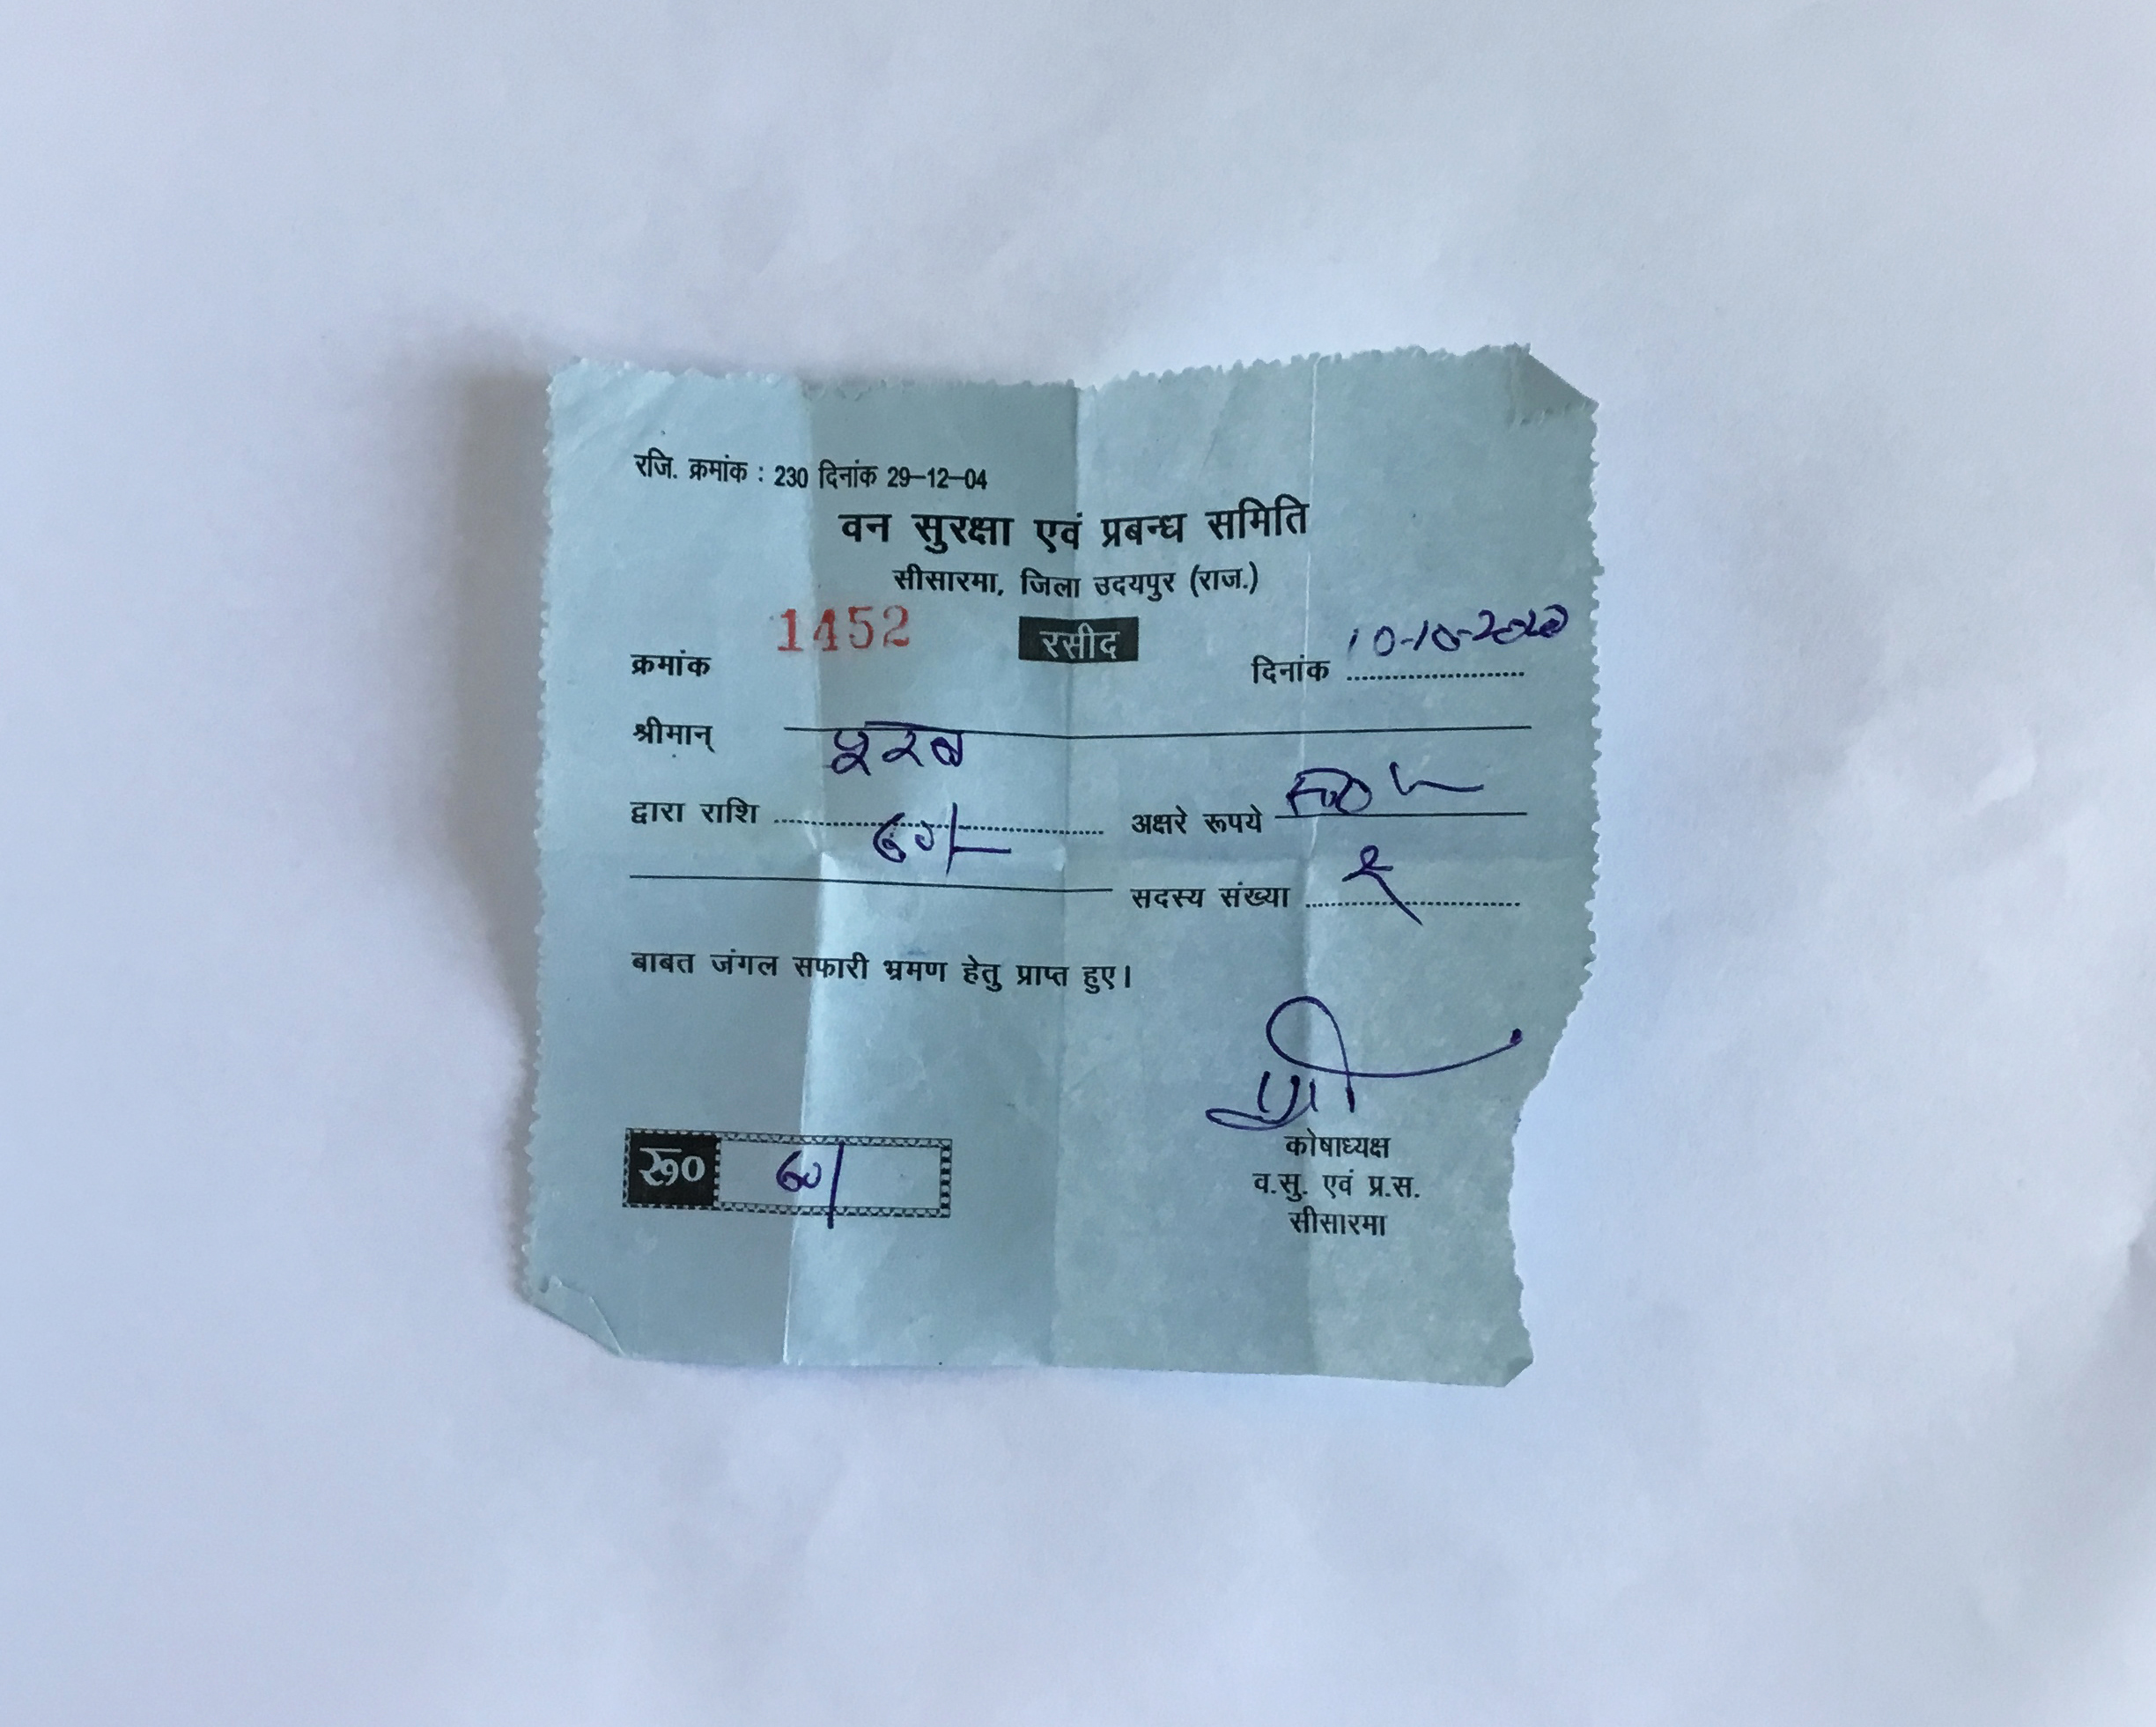 रजि. क्रमांक : 230 दिनांक 29-12-04
वन सुरक्षा एवं प्रबन्ध समिति
सीसारमा, जिला उदयपुर (राज.)
क्रमांक 1452 रसीद दिनांक 10-10-2020
श्रीमान्
द्वारा राशि 60/- अक्षरे रूपये
सदस्य संख्या १
बाबत जंगल सफारी भ्रमण हेतु प्राप्त हुए।
रू0 60/
कोषाध्यक्ष
व.सु. एवं प्र.स.
सीसारमा